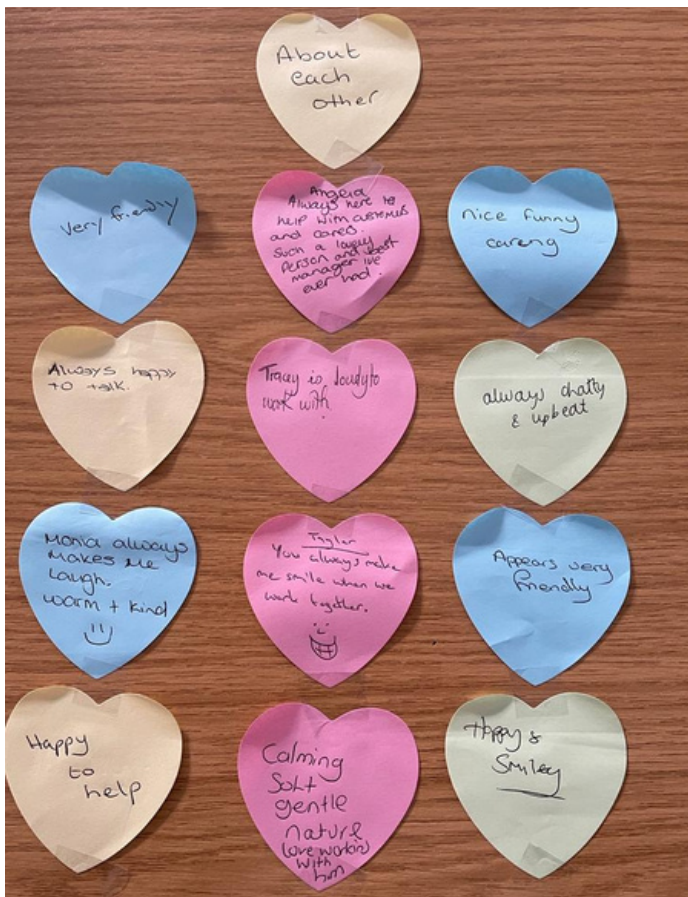 About
each
other
very friendly
Angela
Always here to
help with customers
and cares.
Such a lovely
Person and best
manager ive
ever had.
nice funny
careng
Always happy
to talk.
Tracey is lovely to
work with
always chatty
& upbeat
Monia always
makes me
laugh.
warm + kind
Taylor
You always make
me smile when we
work together.
Appears very
friendly
Happy
to
help
Calming
Soft
gentle
nature
love working
with
him
Happy &
Smiley